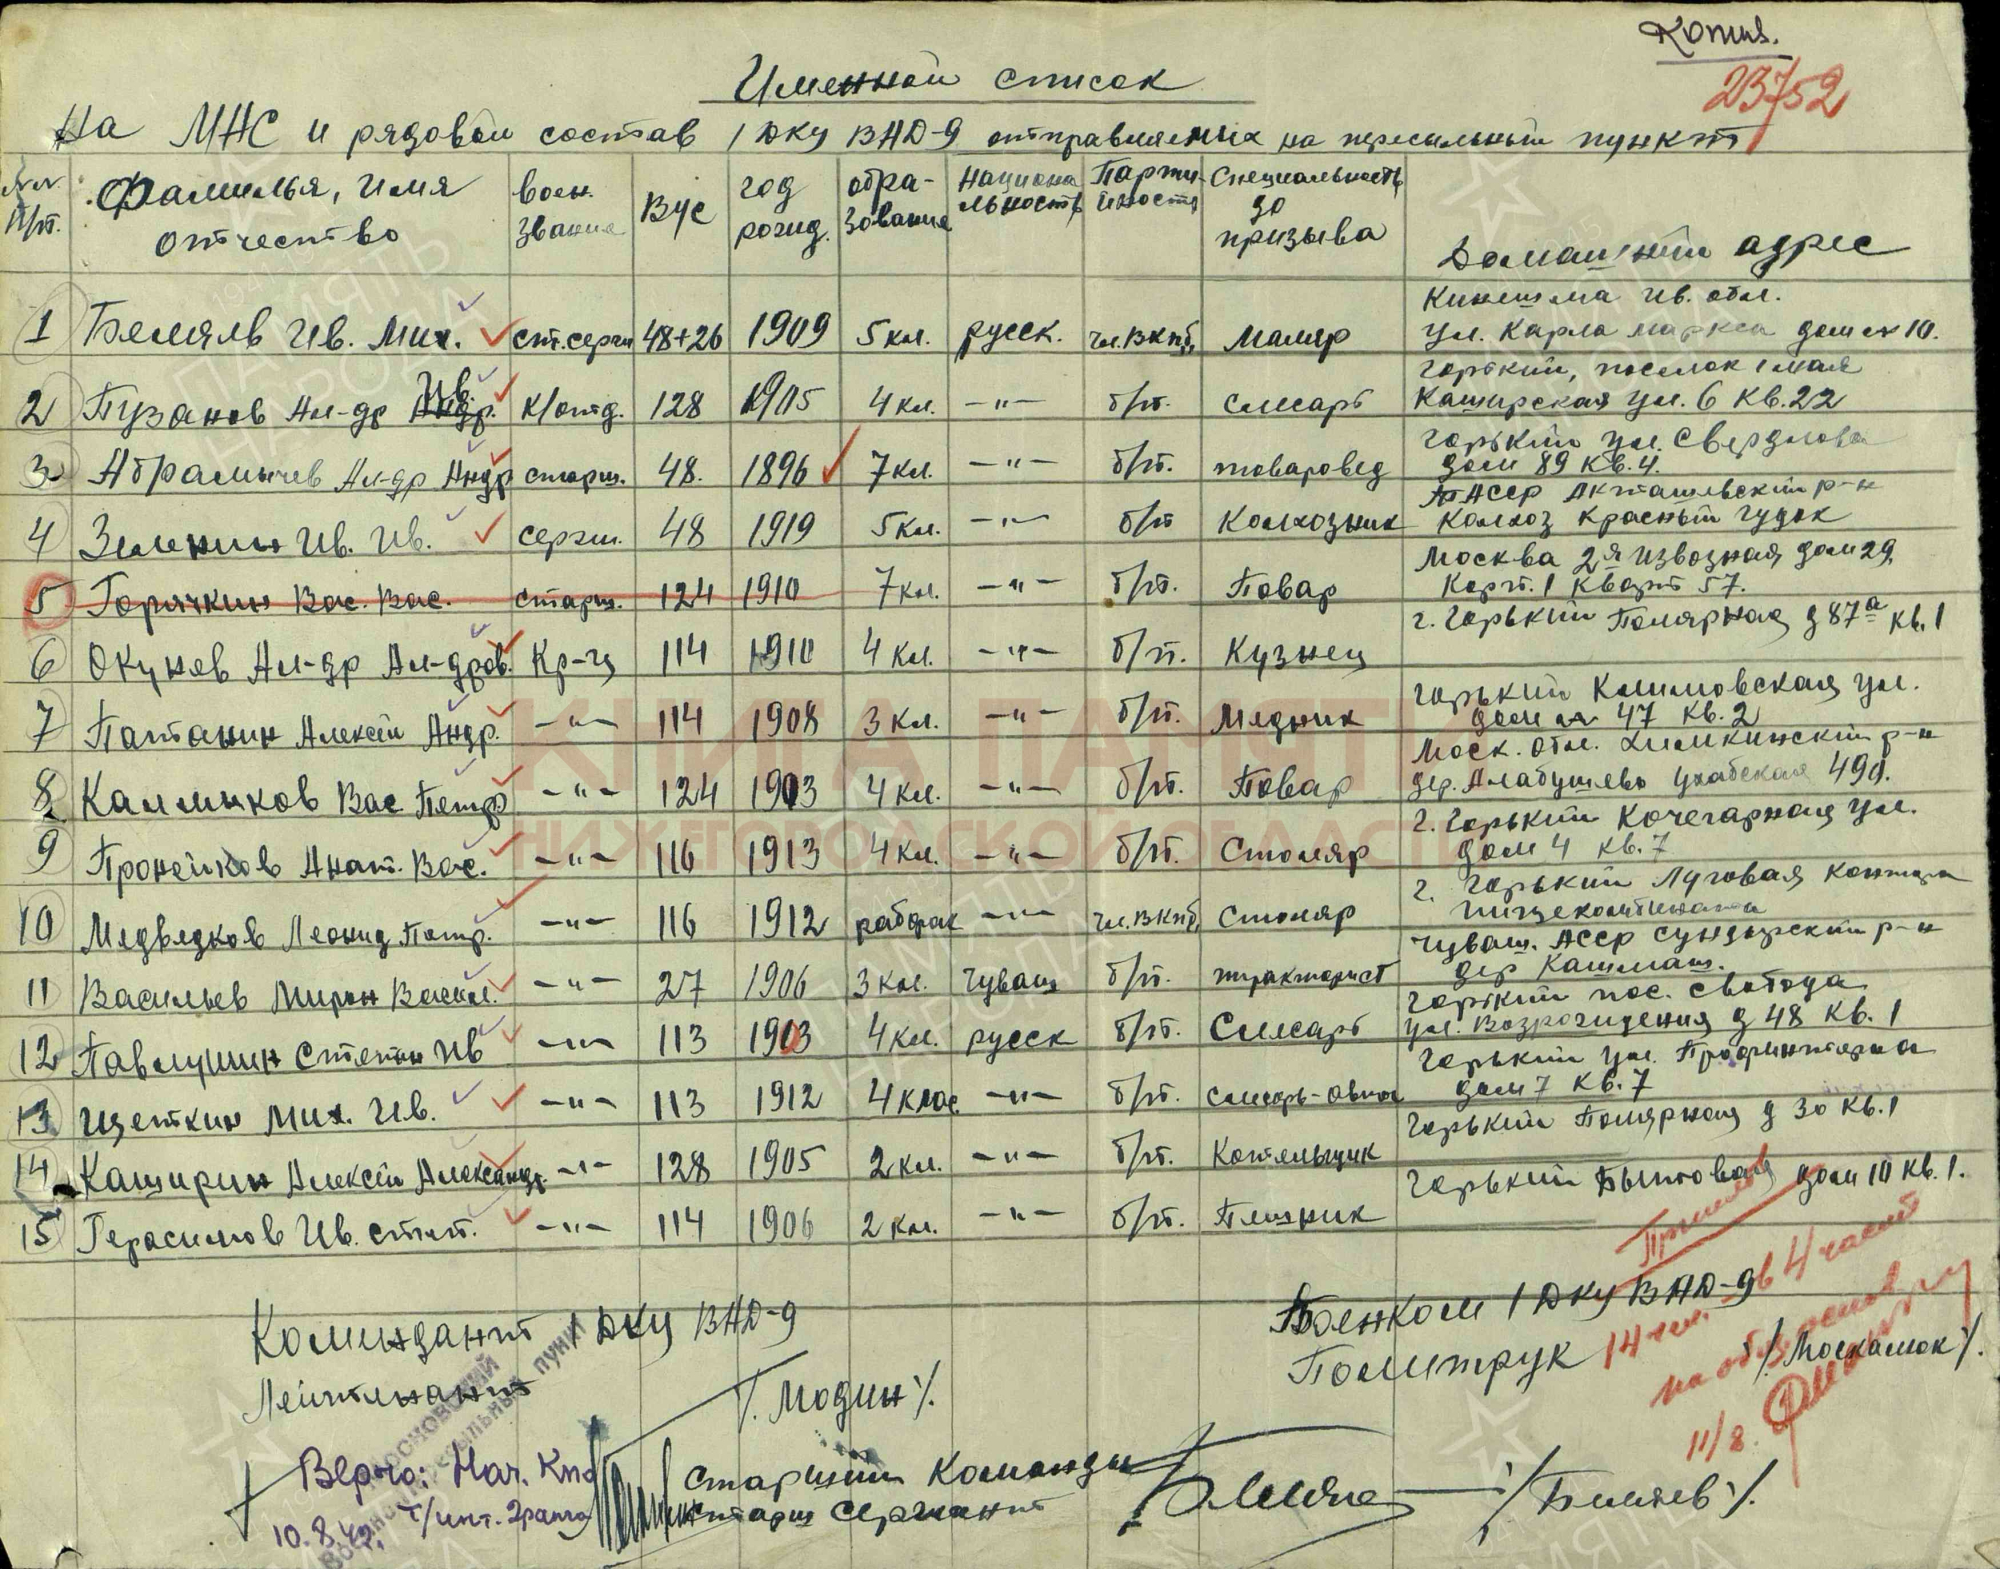 Копия.
23752
Именной список
На МНС и рядовой состав 1 ДКУ ВАД-9 отправляемых на пересыльный пункт
№№ п/п. Фамилья, имя отчество воен. звание ВУС год рожд. образование национальность Партийность Специальность до призыва Домашний адрес
1 Беляев Ив. Мих. ст. сержн 48+26 1909 5 кл. русск. чл. ВКПб, маляр Кинешма Ив. обл. ул. Карла Маркса дом № 10.
2 Пузанов Ал-др Ив. к/отд. 128 1905 4 кл. -"- б/п. слесарь Горький, поселок 1 мая Каширская ул. 6 кв. 22
3 Абрамычев Ал-др Андр старш. 48. 1896 7 кл. -"- б/п. товаровед Горький ул. Свердлова дом 89 кв. 4.
4 Зеленин Ив. Ив. серж. 48 1919 5 кл. -"- б/п Колхозник ТАССР Акташевский р-н Колхоз Красный гудок
5 Горячкин Вас. Вас. старш. 124 1910 7 кл. -"- б/п. Повар Москва 2я Извозная дом 29, Корп. 1 Кварт 57.
6 Окунев Ал-др Ал-дров. Кр-ц 114 1910 4 кл. -"- б/п. Кузнец г. Горький Полярная д 87а кв. 1
7 Паттанин Алексей Андр. -"- 114 1908 3 кл. -"- б/п. Медник Горький Климовская ул. дом № 47 кв. 2
8 Калмыков Вас. Петр -"- 124 1903 4 кл. -"- б/п. Повар Моск. обл. Химкинский р-н дер. Алабушево 49
9 Пронейков Анат. Вас. -"- 116 1913 4 кл. -"- б/п. Столяр г. Горький Кочегарная ул. дом 4 кв. 7
10 Медведков Леонид Петр. -"- 116 1912 рабфак -"- чл. ВКПб, Столяр г. Горький Луговая контора пищекомбината
11 Васильев Мирон Васил. -"- 27 1906 3 кл. Чуваш б/п. тракторист Чуваш. АССР Сундырский р-н дер Кашмаш.
12 Павлушин Степан Ив -"- 113 1903 4 кл. русск б/п. Слесарь Горький пос. Свобода ул. Возрождения д 48 кв. 1
13 Щеткин Мих. Ив. -"- 113 1912 4 клас. -"- б/п. Слесарь-авто Горький ул. Профинтерна дом 7 кв. 7
14 Каширин Алексей Александр. -"- 128 1905 2 кл. -"- б/п. Котельщик Горький Полярная д 30 кв. 1
15 Герасимов Ив. Степ. -"- 114 1906 2 кл. -"- б/п. Печник Горький Бытовая дом 10 кв. 1.
Комендант 1 ДКУ ВАД-9
Лейтенант /Модин/.
Военком 1 ДКУ ВАД-9
Политрук /Москалюк/.
Принял
14 чел. в 4 часть
11/8
Старший Команды
старш сержант /Беляев/.
Верно: Нач.
т/инт. 2 ранга
10.8.42.
КНИГА ПАМЯТИ
НИЖЕГОРОДСКОЙ ОБЛАСТИ
ПАМЯТЬ НАРОДА